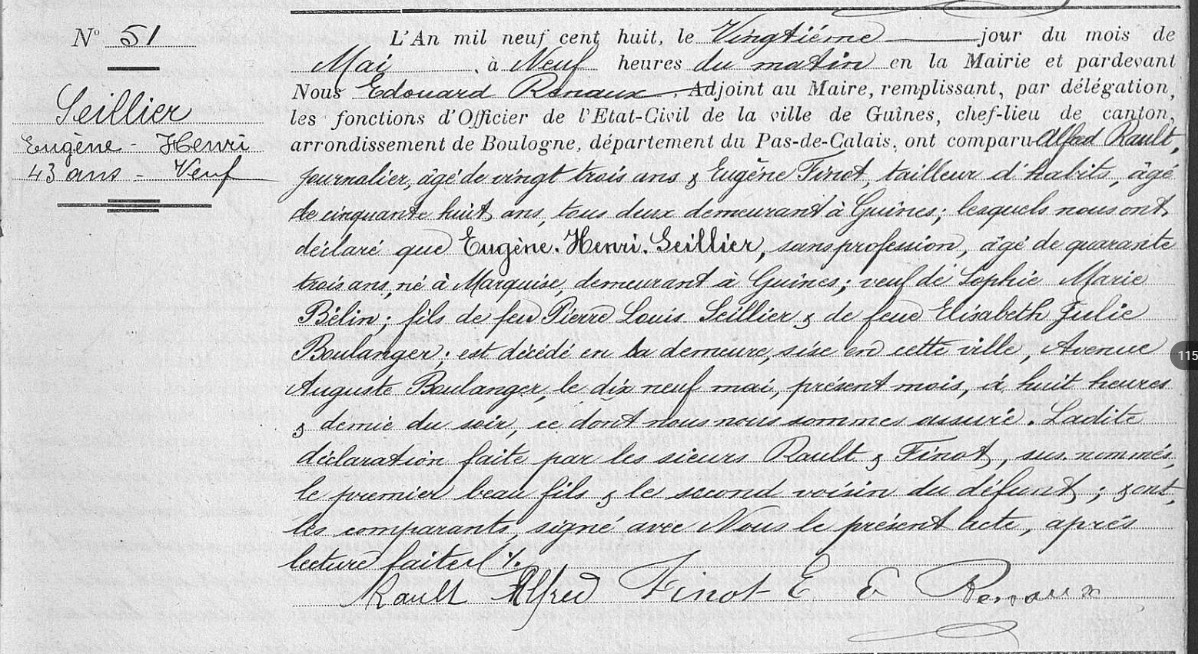 N° 51
Seillier
Eugène - Henri
43 ans - Veuf
L'An mil neuf cent huit, le Vingtième jour du mois de
Mai, à Neuf heures du matin en la Mairie et pardevant
Nous Edouard Renaux, Adjoint au Maire, remplissant, par délégation,
les fonctions d'Officier de l'Etat-Civil de la ville de Guines, chef-lieu de canton,
arrondissement de Boulogne, département du Pas-de-Calais, ont comparu Alfred Rault,
journalier, âgé de vingt trois ans & Eugène Finot, tailleur d'habits, âgé
de cinquante huit ans, tous deux demeurant à Guines; lesquels nous ont
déclaré que Eugène-Henri Seillier, sans profession, âgé de quarante
trois ans, né à Marquise, demeurant à Guines; veuf de Sophie Marie
Bélin; fils de feu Pierre Louis Seillier & de feue Elisabeth Julie
Boulanger; est décédé en sa demeure, sise en cette ville Avenue
Auguste Boulanger, le dix neuf mai, présent mois, à huit heures
& demie du soir, ce dont nous nous sommes assuré. Ladite
déclaration faite par les sieurs Rault & Finot, sus nommés,
le premier beau fils & le second voisin du défunt; & ont
les comparants, signé avec Nous le présent acte, après
lecture faite
Rault Alfred Finot E E Renaux
115